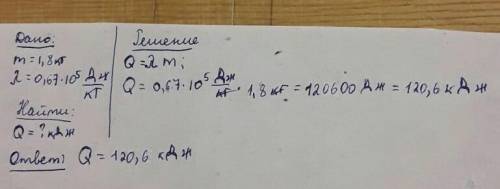 Дано:
m = 1,8 кг
λ = 0,67·10⁵ Дж/кг
Найти:
Q = ? кДж
Решение
Q = λ m;
Q = 0,67·10⁵ Дж/кг · 1,8 кг = 120600 Дж = 120,6 кДж
Ответ: Q = 120,6 кДж